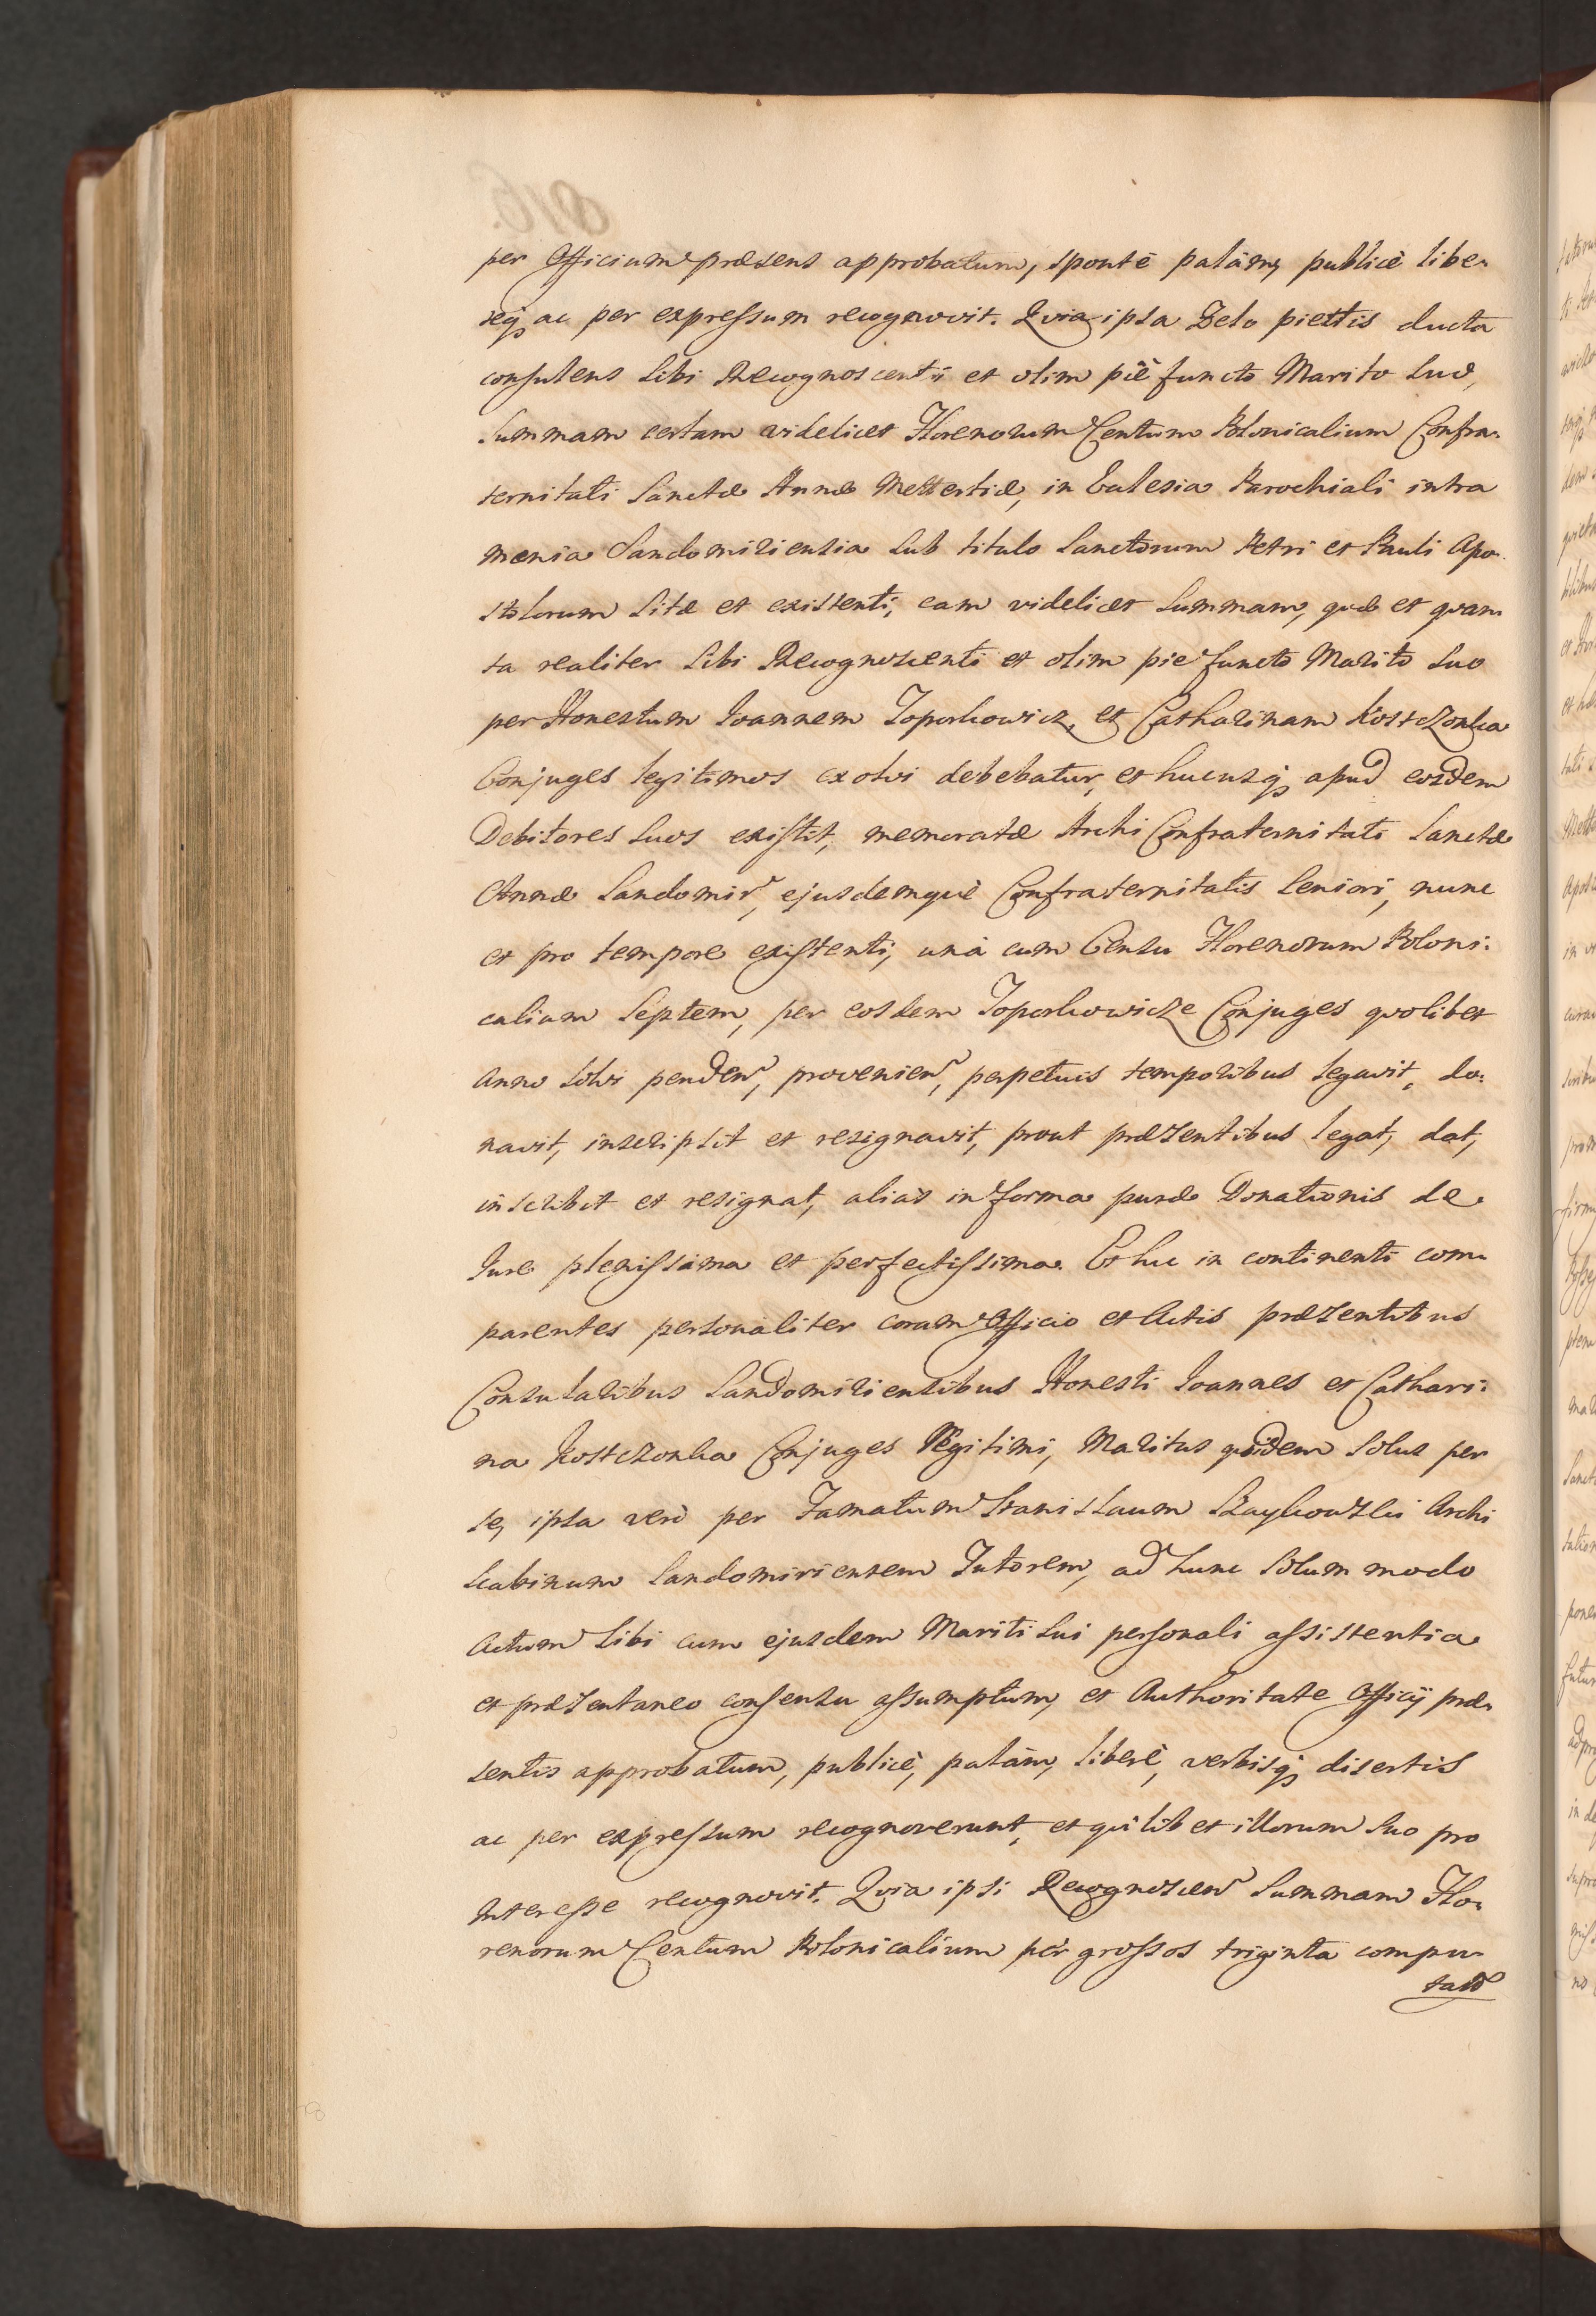 per Officium præsens approbatum, sponte palàm, publicè libe-
reqꝫ ac per expressum recognovit. Qvia ipsa Zelo piettis ducta
consulens sibi Recognoscenti et olim piè functo Marito suo,
summam certam videlicet Florenorum Centum Polonicalium Confra-
ternitati Sanctæ Annæ Mettertiæ, in Eclesia Parochiali intra
mænia Sandomiriensia sub titulo Sanctorum Petri et Pauli Apo-
stolorum sitæ et existenti, eam videlicet summam, quæ et qvan
ta realiter sibi Recognoscenti et olim pie functo Marito suo
per Honestum Joannem Toporkowicz, et Catharinam Kostczonka
Conjuges legitimos exolvi debebatur, et hucusqꝫ apud eosdem
Debitores suos existit, memoratæ Archi Confraternitati Sanctæ
Annæ Sandomir, ejusdemqvè Confraternitatis Seniori, nunc
et pro tempore existenti, unà cum Censu Florenorum Poloni-
calium Septem, per eosdem Toporkowicze Conjuges qvolibet
anno solvi penden, provenien, perpetuis temporibus legavit, do-
navit, inscripsit et resignavit, prout præsentibus legat, dat,
inscribit et resignat, aliàs in forma puræ Donationis de
Jure plenissima et perfectissima. Et hic in continenti com-
parentes personaliter coram Officio et Actis præsentibus
Consularibus Sandomiriensibus Honesti Joannes et Cathari-
na Kostczonka Conjuges legitimi, Maritus qvidem solus per
se, ipsa verò per Famatum Stanislaum Szaykowski Archi
Scabinum Sandomiriensem Tutorem, ad hunc solum modo
actum sibi cum ejusdem Mariti sui personali assistentia
et præsentaneo consensu assumptum, et Authoritate Officij præ-
sentis approbatum, publicè, palàm, liberè, verbisqꝫ disertis
ac per expressum recognoverunt, et qvilibet illorum suo pro
interesse recognovit. Qvia ipsi Recognoscen summam Flo-
renorum Centum Polonicalium per grossos triginta compu-
tand